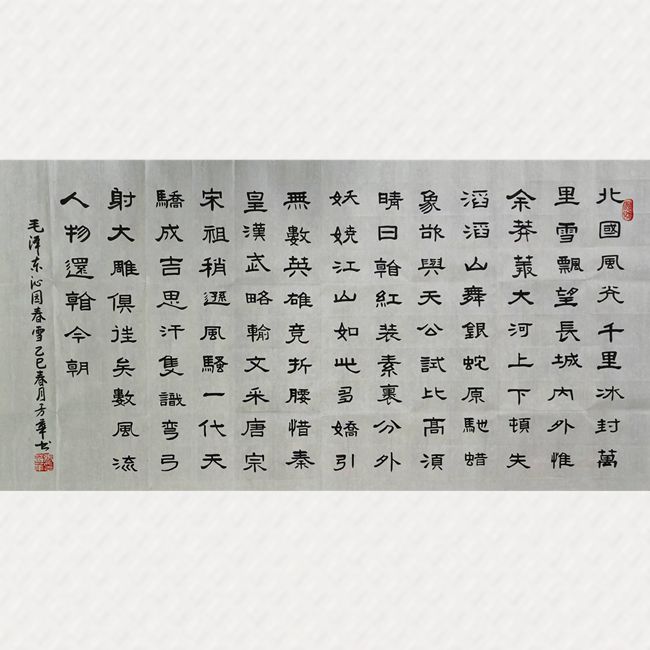 北國風光千里冰封萬
里雪飄望長城內外惟
余莽叢大河上下頓失
滔滔山舞銀蛇原馳蜡
象欲與天公試比高須
晴日看紅装素裹分外
妖嬈江山如此多嬌引
無數英雄竞折腰惜秦
皇漢武略輸文采唐宗
宋祖稍遜風騷一代天
驕成吉思汗隻識彎弓
射大雕俱往矣數風流
人物還看今朝
毛澤东沁园春雪乙巳春月方书